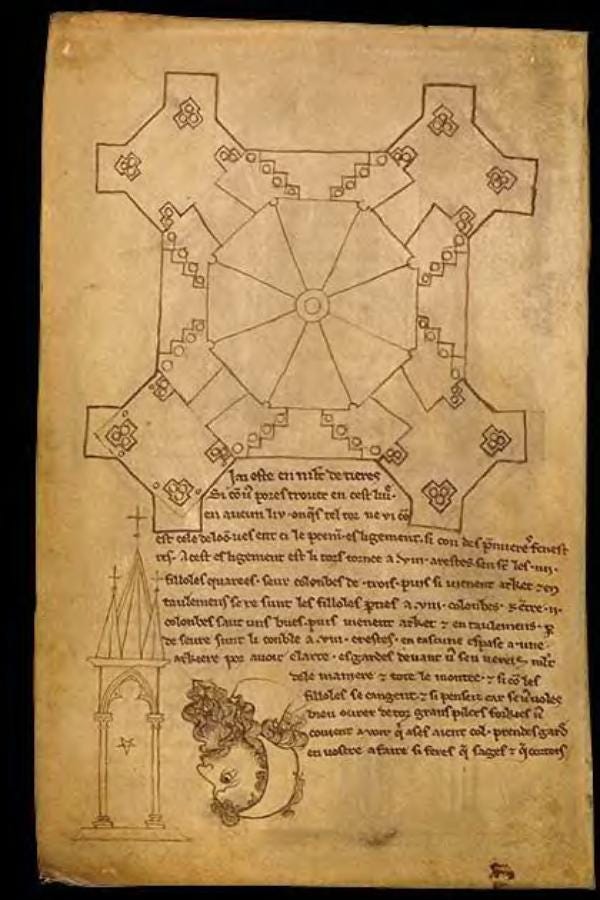 J'ai este en mlt de tieres
Si cō v̄ pores trover en cest liv̄
en aucun liv onq̄s tel tor ne vi cō
est cele de loō ves ent ci le premi esligement, si con des p̄miere fenest
res. A cest esligement est li tors tornee a .viii. arestes. sen st̄ les .iiii.
filloles quarees. seur colonbes de .trois. puis si vienent arket ⁊ en
taulemens se re sunt les filloles p̄ties a .viii. colonbes. ⁊ ētre .ii.
colonbes saut uns bues. puis vienent arket ⁊ en taulemens. p̄
de seure sunt li conble a .viii. crestes. en cascune espase a une
arkiere por avoir clarte. esgardes devant v̄ s'en veres mlt
dele maniere ⁊ tote le montee. ⁊ si cō les
filloles se cangent. ⁊ si penseiz car se v̄ voles
bien ovrer de toz grans pilers forkies v̄
covient avoir q̄ ases aient col. prendes gard
en vostre afaire si feres q̄ sages ⁊ q̄ cortois